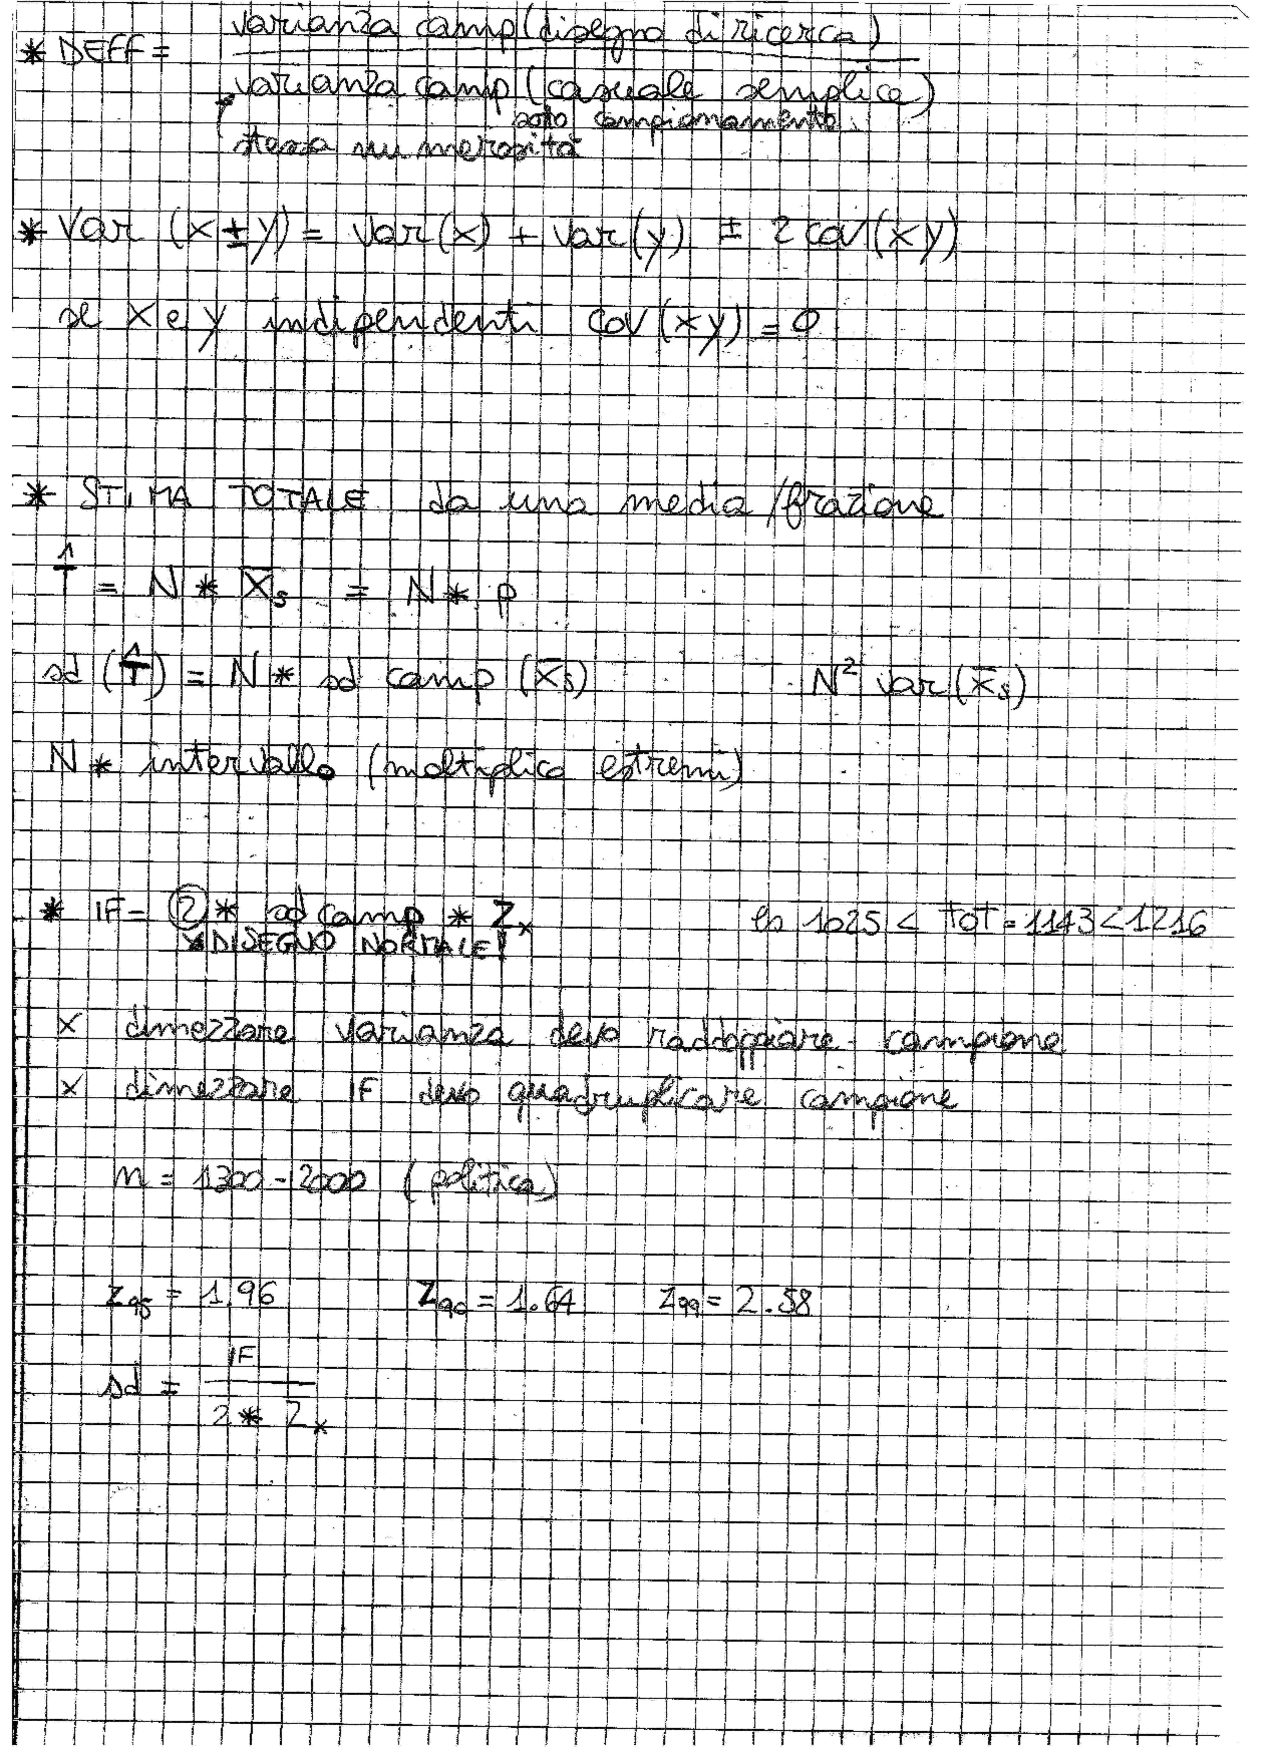 * DEFF = varianza camp (disegno di ricerca)
varianza camp (casuale semplice)
sotto campionamento
stessa numerosità
* Var (x ± y) = Var (x) + Var (y) ± 2 cov (xy)
se x e y indipendenti cov (xy) = 0
* STIMA TOTALE da una media / frazione
T̂ = N * X̄s = N * p
sd (T̂) = N * sd camp (x̄s) N² var (x̄s)
N * intervallo (moltiplico estremi)
* IF = 2 * sd camp * Zx es 1025 < tot = 1143 < 1216
DISEGNO NORMALE!
x dimezzare varianza devo raddoppiare campione
x dimezzare IF devo quadruplicare campione
n = 1300 - 2000 (politica)
Z95 = 1.96 Z90 = 1.64 Z99 = 2.58
sd = IF
2 * Zx